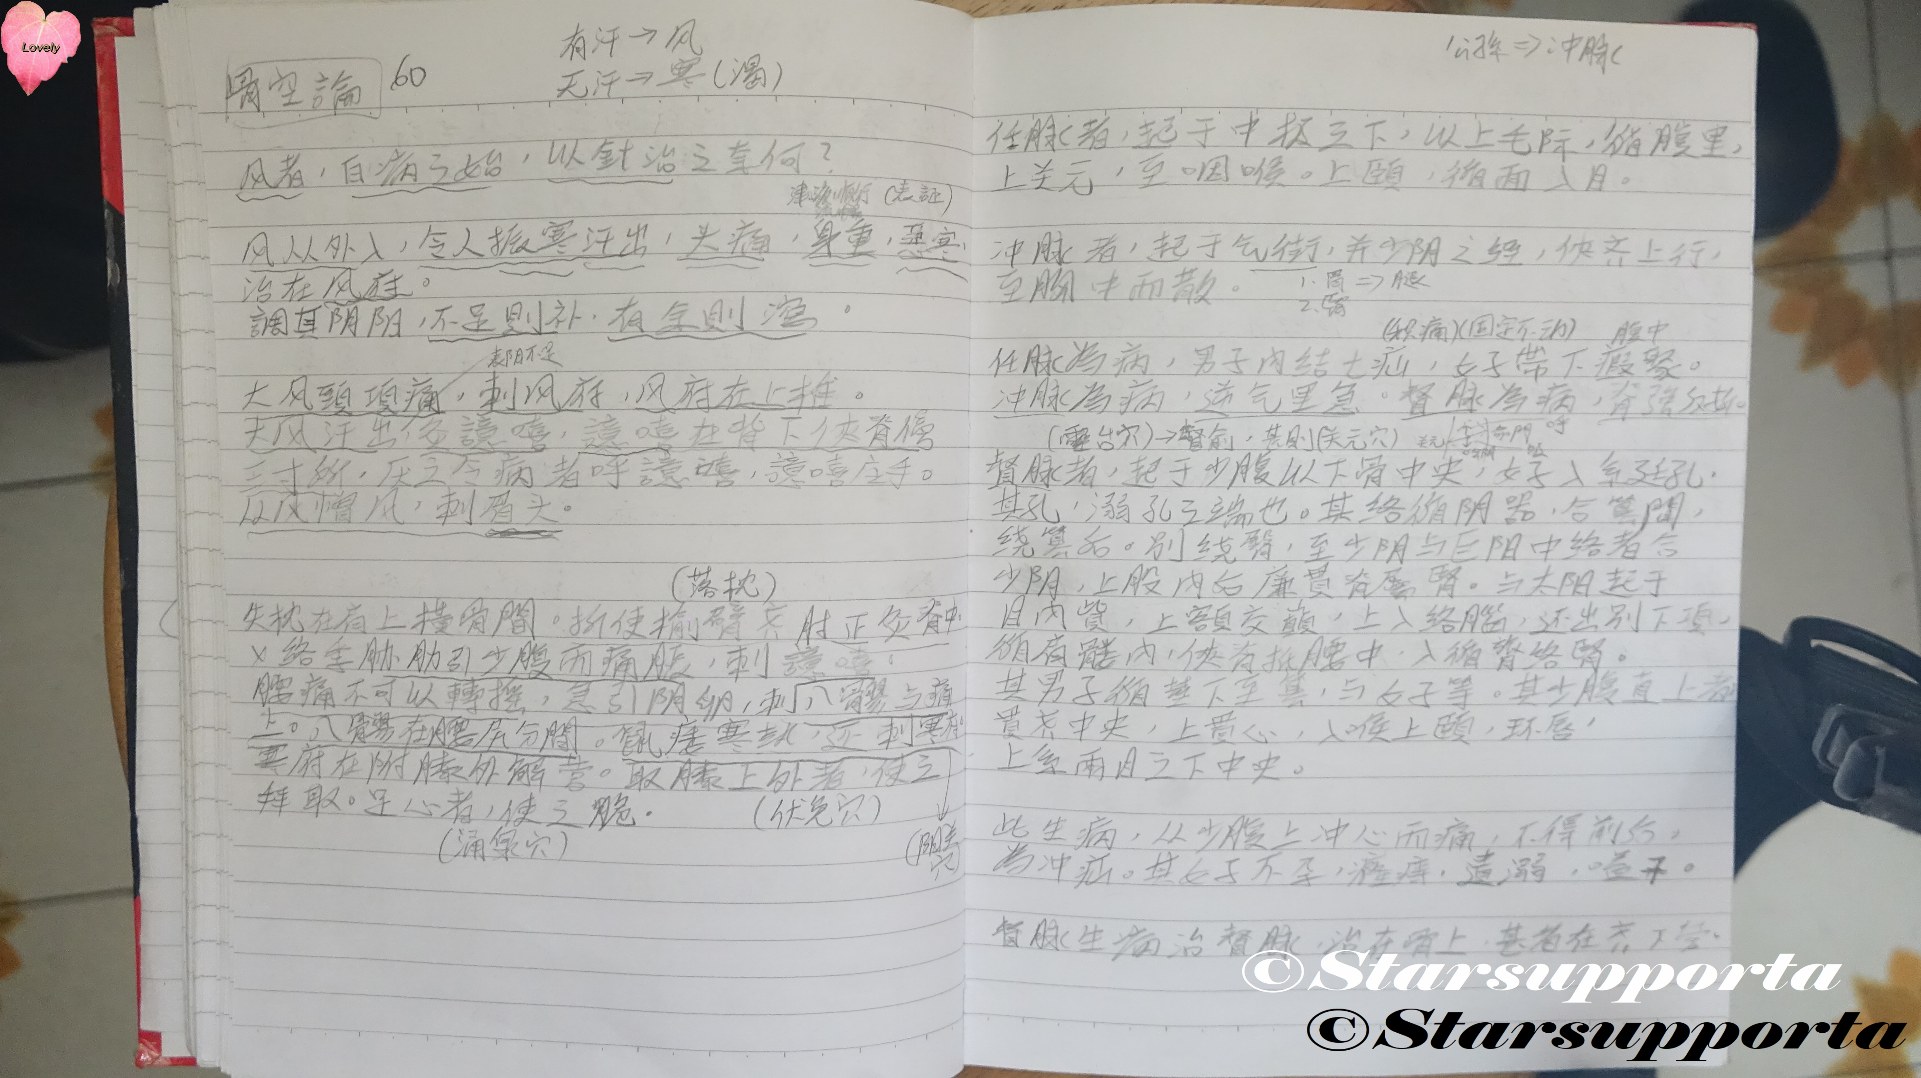 Lovely
骨空論 60
有汗→风
无汗→寒(濁)
风者，百病之始，以針治之奈何？
(表証)
风从外入，令人振寒汗出，头痛，身重，恶寒，
治在风府。
調其阴阳，不足則补，有余則瀉。
大风頭項痛，刺风府，风府在上椎。
大风汗出灸譩嘻，譩嘻在背下侠脊傍
三寸所，压之令病者呼譩嘻，譩嘻应手。
从风憎风，刺眉头。
(落枕)
失枕在肩上横骨間。折使揄臂齐肘正灸脊中。
络季胁肋引少腹而痛胀，刺譩嘻。
腰痛不可以轉摇，急引阴卵，刺八髎与痛
上。八髎在腰尻分間。鼠瘻寒热，还刺寒府
寒府在附膝外解营。取膝上外者，使之
拜取。足心者，使之跪。
(伏兔穴)
(涌泉穴)
公孫⇒冲脉
任脉者，起于中极之下，以上毛际，循腹里，
上关元，至咽喉。上頤，循面入目。
冲脉者，起于气街，并少阴之经，侠齐上行，
至胸中而散。
1.胃⇒脉
2.腎
(积痛)(固定不动) 腹中
任脉為病，男子内结七疝，女子带下瘕聚。
冲脉為病，逆气里急。督脉為病，脊强反折。
督脉者，起于少腹以下骨中央，女子入系廷孔。
其孔，溺孔之端也。其络循阴器，合篡間，
绕篡后。别绕臀，至少阴与巨阴中络者合
少阴，上股内后廉貫脊属腎。与太阴起于
目内眥，上額交巔，上入络腦，还出别下項，
循肩髆内，侠脊抵腰中，入循膂络腎。
其男子循莖下至篡，与女子等。其少腹直上者
貫齐中央，上貫心，入喉上頤，环唇，
上系兩目之下中央。
此生病，从少腹上冲心而痛，不得前后，
為冲疝。其女子不孕，癃痔，遺溺，嗌干。
督脉生病治督脉，治在骨上，甚者在齐下营。
©Starsupporta
©Starsupporta